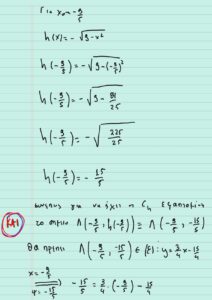 Για x₀=-9/5
h(x)=-√(9-x²)
h(-9/5)=-√(9-(-9/5)²)
h(-9/5)=-√(9-81/25)
h(-9/5)=-√(225/25)
h(-9/5)=-15/5
για να έχει η Cₕ εφαπτομένη
το σημείο Λ(-9/5, h(-9/5)) ≡ Λ(-9/5, -15/5)
Θα πρέπει Λ(-9/5, -15/5) ∈ (ε): y=3/4x-15/4
x=-9/5
ψ=-15/5 -15/5=3/4·(-9/5)-15/4